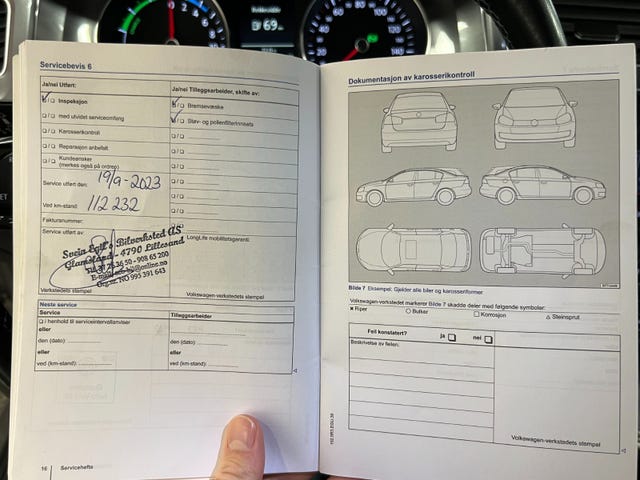 69
20
40
60
80
100
120
140
Servicebevis 6
Ja/nei Utført:
Ja/nei Tilleggsarbeider, skifte av:
Inspeksjon
Bremsevæske
med utvidet serviceomfang
Støv- og pollenfilterinnsats
Karosserikontroll
Reparasjon anbefalt
Kundeønsker
(merkes også på ordrep)
Service utført den: 19/9-2023
Ved km-stand: 112 232
Fakturanummer:
Service utført av:
LongLife mobilitetsgaranti:
Svein Egil's Bilverksted AS
Glamsland - 4790 Lillesand
908 65 200
Org.nr. NO 993 391 643
Verkstedets stempel
Volkswagen-verkstedets stempel
Neste service
Service
Tilleggsarbeider
i henhold til serviceintervallanviser
eller
den (dato):
den (dato):
eller
eller
ved (km-stand):
ved (km-stand):
16 Servicehefte
Dokumentasjon av karosserikontroll
Bilde 7 Eksempel: Gjelder alle biler og karosseriformer
Volkswagen-verkstedet markerer Bilde 7 skadde deler med følgende symboler:
× Riper ○ Bulker □ Korrosjon △ Steinsprut
Feil konstatert? ja nei
Beskrivelse av feilen:
Volkswagen-verkstedets stempel